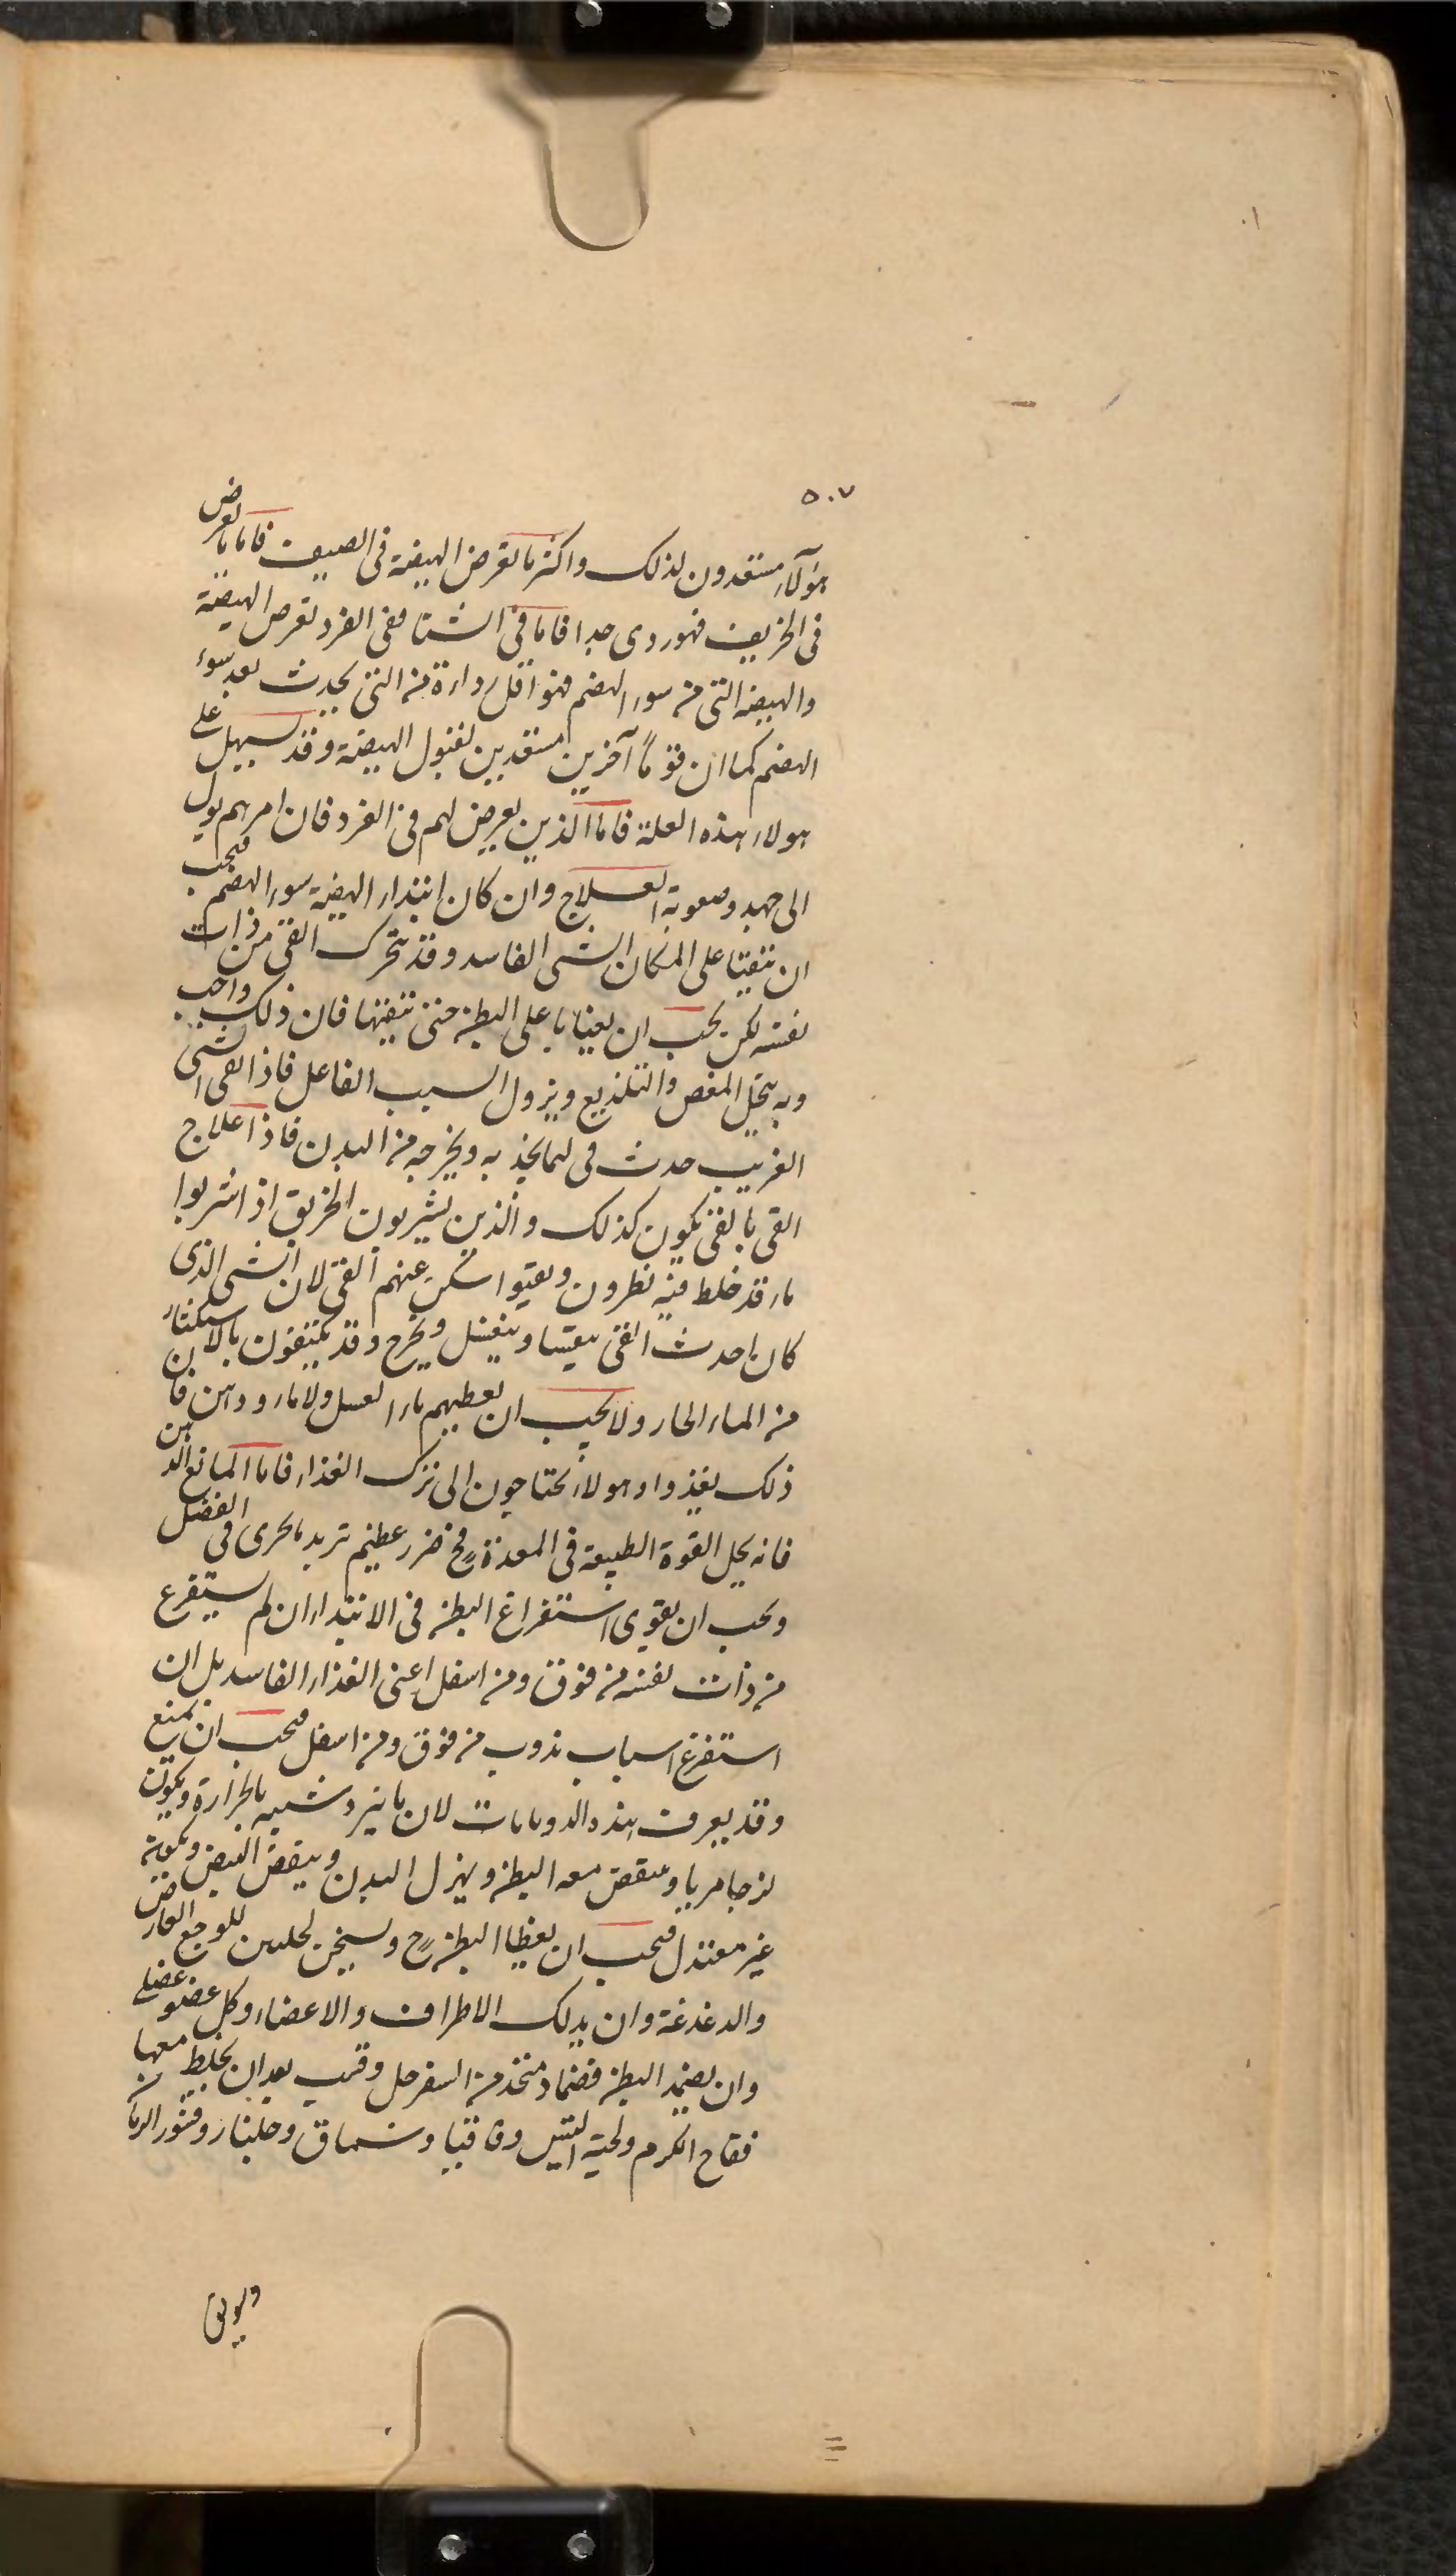 ٥٠٧
هؤلاء مستعدون لذلك واكثر ما تعرض الهيضة فى الصيف فاما ما يعرض
فى الخريف فهو ردى جدا فاما فى الشتا ففى الفرد تعرض الهيضة
والهيضه التى من سوء الهضم فهو اقل رداءة من التى يحدث بعد سوء
الهضم كما ان قوماً آخرين مستعدين لقبول الهيضة وقد يسهل على
هولاء هذه العلة فاما الذين يعرض لهم فى الفرد فان امرهم يول
الى جهد وصعوبة العلاج وان كان ابتداء الهيضة سوء الهضم فيجب
ان تتقيا على المكان الشى الفاسد وقد يتحرك القى من ذات
نفسه لكن يجب ان يعنا با على البطن حتى تنقيها فان ذلك واجب
وبه ينحل المغص والتلذيع ويزول السبب الفاعل فاذا القى الشى
الغريب حدث فى لما يجذ به ويخرجه من البدن فاذا علاج
القى بالقى يكون كذلك والذين يشربون الخربق اذا شربوا
ماء قد خلط فيه نطرون وتقيوا سكن عنهم القى لان الشى الذى
كان احدث القى يتقيا وينغسل ويخرج وقد يكتفون بالاستكثار
من الماء الحار ولا يجب ان يعطيهم ماء العسل ولا ماء ودهن فان
ذلك يغذوا وهولاء يحتاجون الى ترك الغذاء فاما المانع الدهن
فانه يحل القوة الطبيعة فى المعدة فح ضرر عظيم تريد بالحرى فى الفضل
ويجب ان يقوى استفراغ البطن فى الابتداء ان لم يستفرغ
من ذات نفسه من فوق ومن اسفل اعنى الغذاء الفاسد بل ان
استفرغ اسباب يذوب من فوق ومن اسفل فيجب ان يمنع
وقد يعرف هذه الذوبانات لان ما يبرد شبيه بالخرارة ويكون
لزجا مريا وينقص معه البطن ويهزل البدن وينقص النبض ويكونه
غير معتدل فيجب ان يعطا البطن ح ويسخن للوجع العارض
والدغدغة وان يدلك الاطراف والاعضاء وكل عضو عضلى
وان يضمد البطن فضماد متخذ من السفرجل وقسب بعد ان يخلط معها
فقاح الكرم ولحية التيس وقاقيا وسماق وجلنار وقشور الرمان